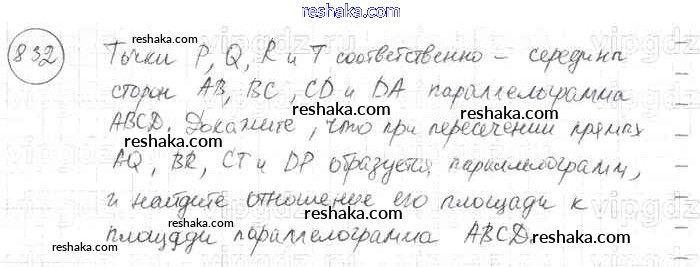 reshaka.com
832 Точки P, Q, R и T соответственно - середины
сторон AB, BC, CD и DA параллелограмма
reshaka.com
ABCD. Докажите, что при пересечении прямых
reshaka.com
AQ, BR, CT и DP образуется параллелограмм,
reshaka.com
и найдите отношение его площади к
reshaka.com
площади параллелограмма ABCD.
reshaka.com